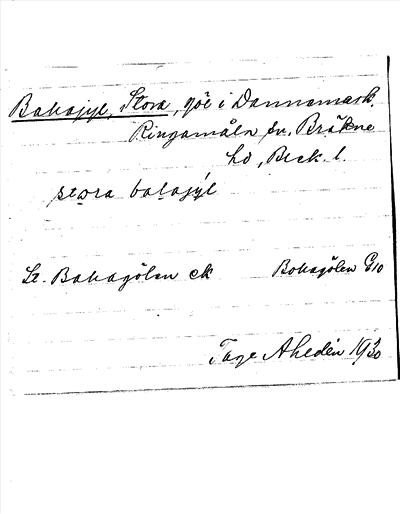 Bakagyl, Stora, göl i Dannemark.
Ringamåla sn, Bräkne
hd, Blek. l.
stora bakagýl
St. Bakagölen ek Bokagölen G10
Tage Ahedén 1930